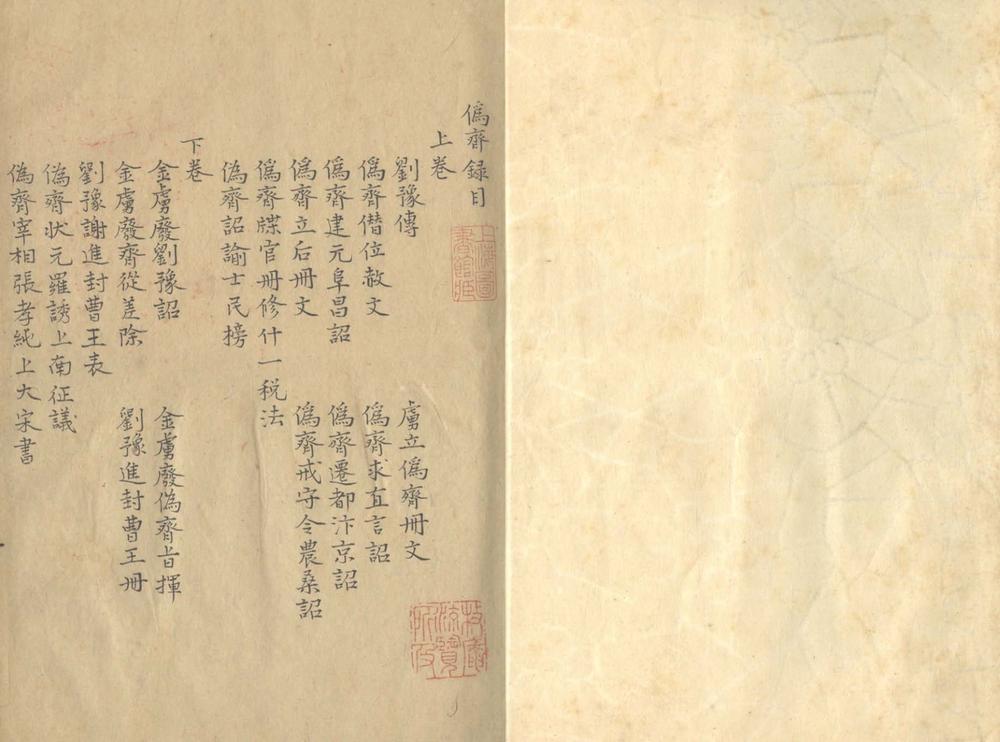 偽齊録目
上卷
劉豫傳 虜立偽齊冊文
偽齊僣位赦文 偽齊求直言詔
偽齊建元阜昌詔 偽齊遷都汴京詔
偽齊立后冊文 偽齊戒守令農桑詔
偽齊牒官冊修什一税法
偽齊詔諭士民榜
下卷
金虜廢劉豫詔 金虜廢偽齊旨揮
金虜廢齊從差除 劉豫進封曹王冊
劉豫謝進封曹王表
偽齊狀元羅誘上南征議
偽齊宰相張孝純上大宋書
上海圖書館藏